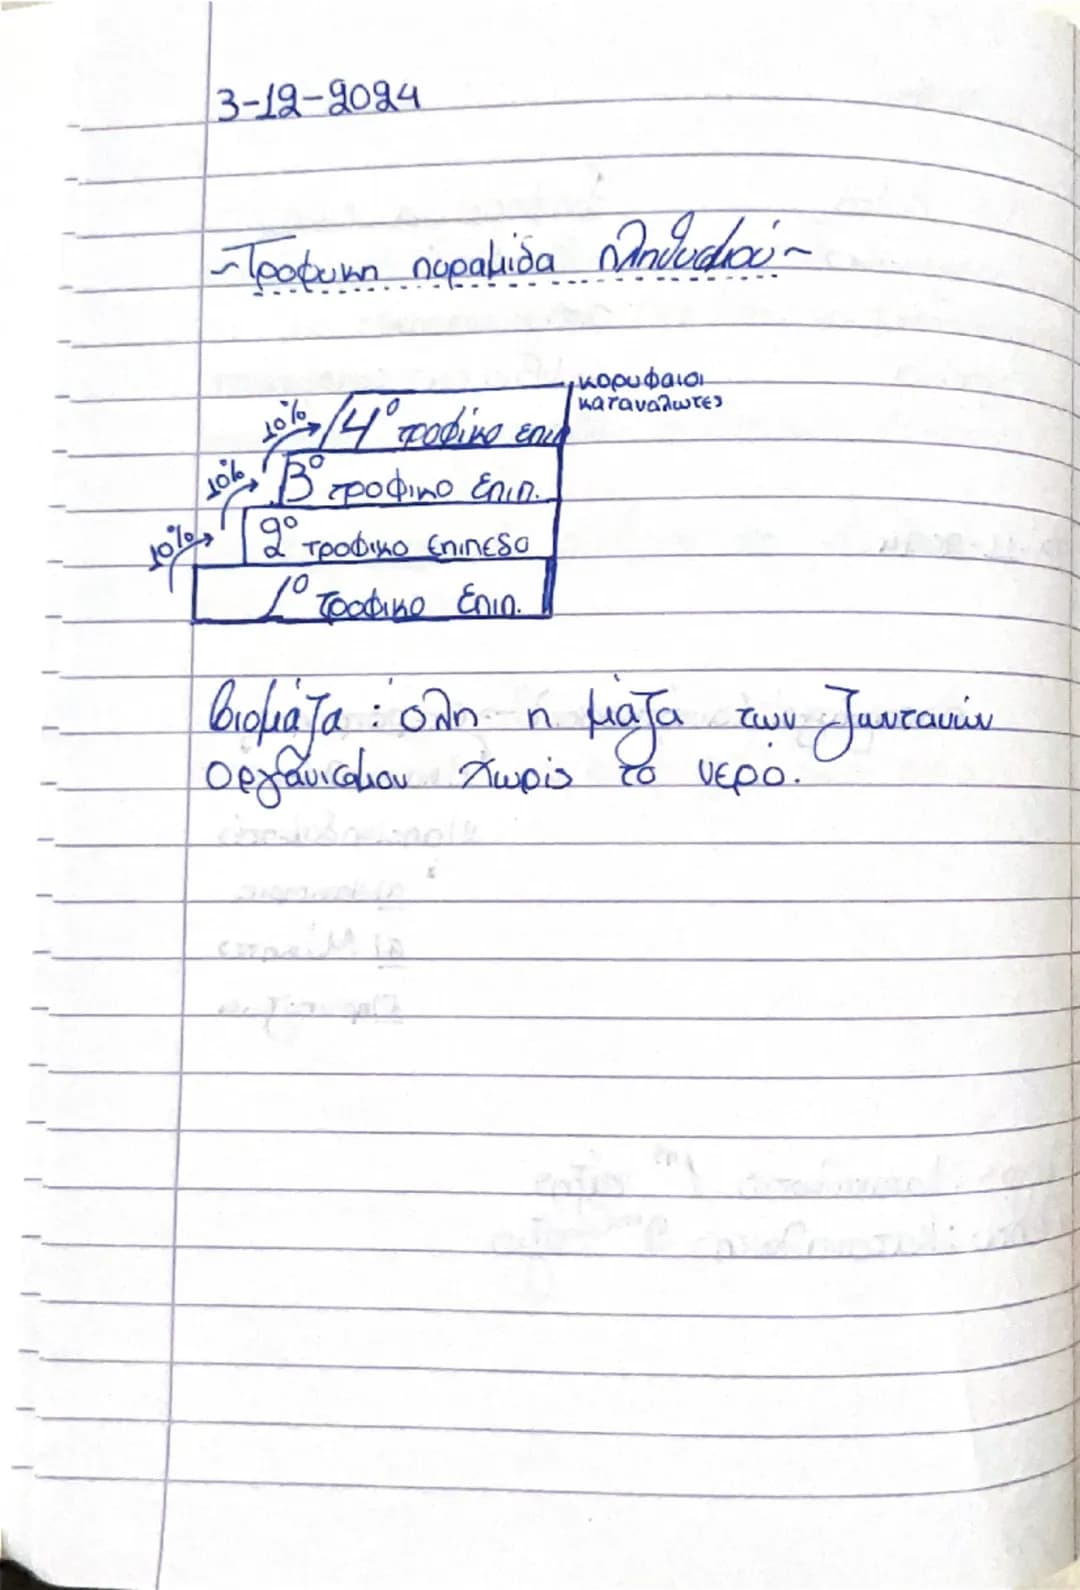 3-12-2024
~Τροφικη πυραμιδα πληθυσμού~
κορυφαιοι
καταναλωτες
10% 4° τροφικο επιπ
10% 3° τροφικο επιπ.
10% 2° τροφικο επιπεδο
1° τροφικο επιπ.
βιομάζα: όλη η μάζα των ζωντανών
οργάνισμου χωρίς το νερό.